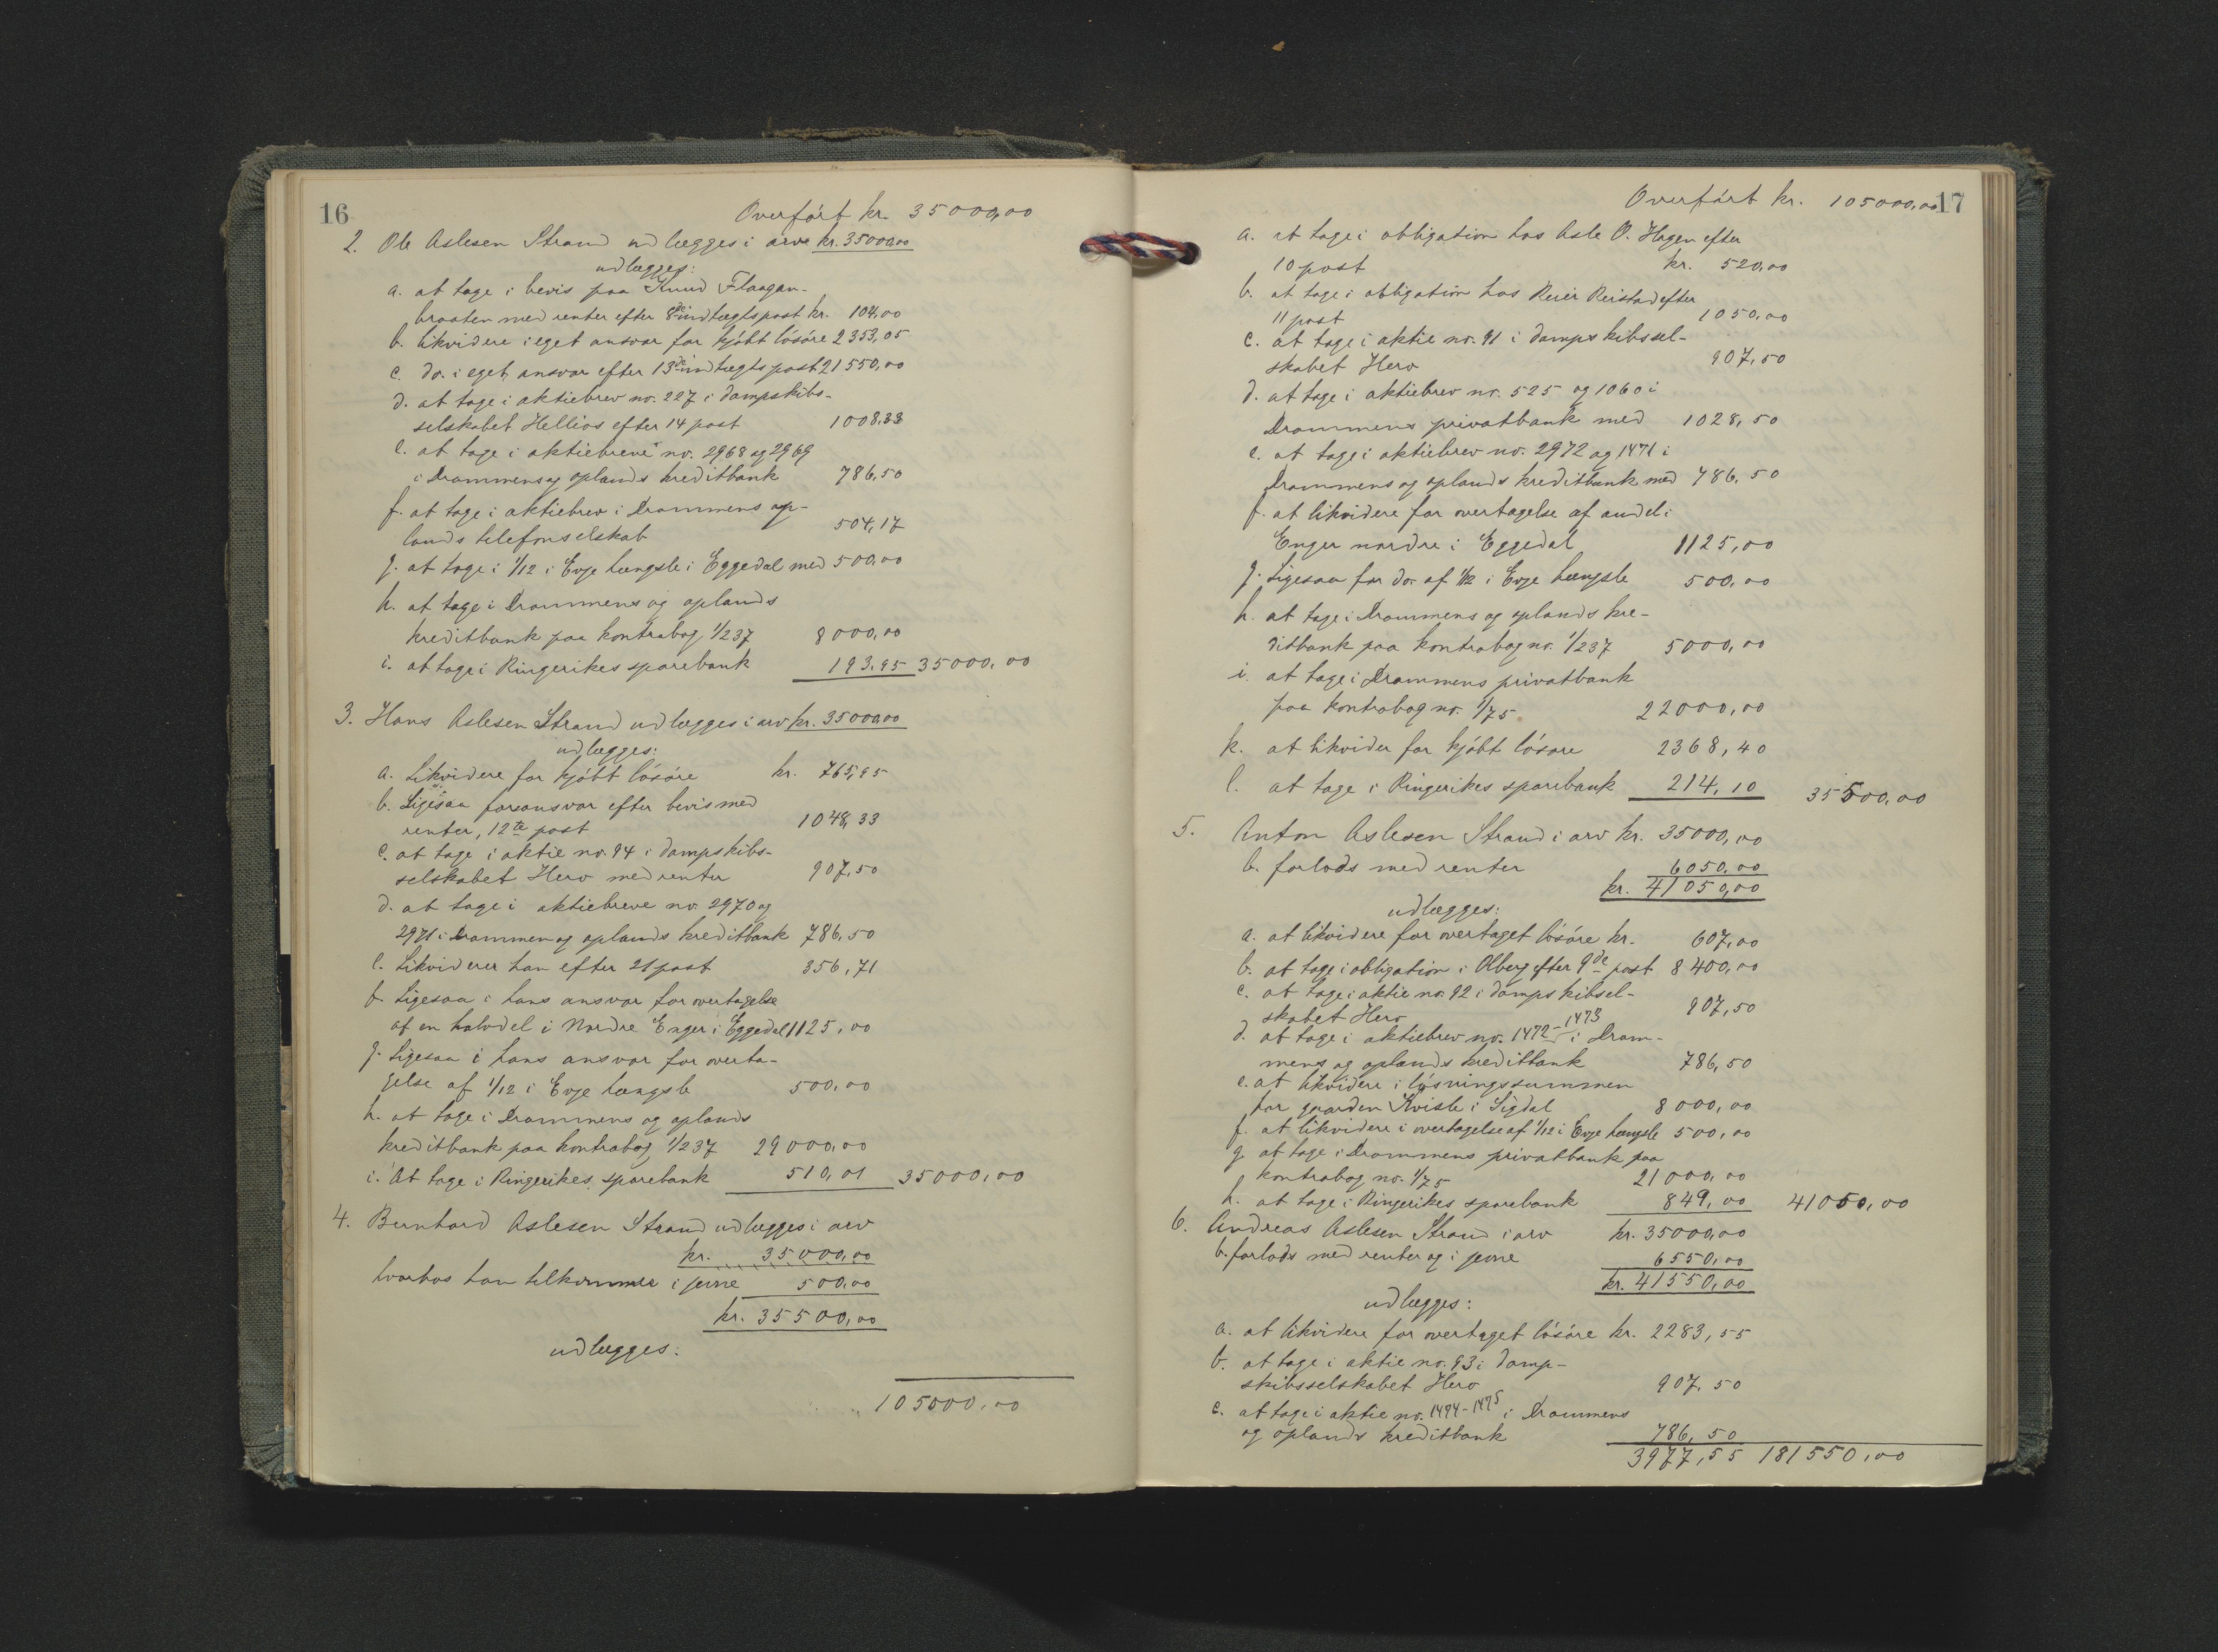 16
Overført kr. 35000,00
2. Ole Aslesen Strand udlægges i arve kr. 35000,00
udlægges:
a. at tage i bevis paa Knud Flaagan-
braaten med renter efter 8de indtægtspost kr. 104,00
b. likvidere i eget ansvar for kjøbt løsøre 2353,05
c. do. i eget ansvar efter 13de indtægtspost 21550,00
d. at tage i aktiebrev no. 227 i dampskibs-
selskabet Hellios efter 14 post 1008,33
e. at tage i aktiebreve no. 2968 og 2969
i Drammens og oplands kreditbank 786,50
f. at tage i aktiebrev i Drammens op-
lands telefonselskab 504,17
g. at tage i 1/12 i Evje længsle i Eggedal med 500,00
h. at tage i Drammens og oplands
kreditbank paa kontrabog 1/237 8000,00
i. at tage i Ringerikes sparebank 193,95 35000,00
3. Hans Aslesen Strand udlægges i arv kr. 35000,00
udlægges:
a. Likvidere for kjøbt løsøre kr. 765,95
b. Ligesaa foransvar efter bevis med
renter, 12te post 1048,33
c. at tage i aktie no. 94 i dampskibs-
selskabet Hero med renter 907,50
d. at tage i aktiebreve no. 2970 og
2971 i Drammen og oplands kreditbank 786,50
e. Likviderer han efter 21 post 356,71
f. Ligesaa i hans ansvar for overtagelse
af en halvdel i Nordre Enger i Eggedal 1125,00
g. Ligesaa i hans ansvar for overta-
gelse af 1/12 i Evje længsle 500,00
h. at tage i Drammens og oplands
kreditbank paa kontrabog 1/237 29000,00
i. At tage i Ringerikes sparebank 510,01 35000,00
4. Bernhard Aslesen Strand udlægges i arv
kr. 35000,00
hvorhos han tilkommer i jevne 500,00
kr. 35500,00
udlægges:
105000,00
17
Overført kr. 105000,00
a. at tage i obligation hos Asle O. Hagen efter
10 post kr. 520,00
b. at tage i obligation hos Reier Reistad efter
11 post 1050,00
c. at tage i aktie no. 91 i dampskibssel-
skabet Hero 907,50
d. at tage i aktiebrev nr. 525 og 1060 i
Drammens privatbank med 1028,50
e. at tage i aktiebrev no. 2972 og 1471 i
Drammens og oplands kreditbank med 786,50
f. at likvidere for overtagelse af andel i
Enger nordre i Eggedal 1125,00
g. Ligesaa for do. af 1/12 i Evje længsle 500,00
h. at tage i Drammens og oplands kre-
ditbank paa kontrabog no. 1/237 5000,00
i. at tage i Drammens privatbank
paa kontrabog no. 1/75 22000,00
k. at likvider for kjøbt løsøre 2368,40
l. at tage i Ringerikes sparebank 214,10 35500,00
5. Anton Aslesen Strand i arv kr. 35000,00
b. forlods med renter 6050,00
kr. 41050,00
udlægges:
a. at likvidere for overtaget løsøre kr. 607,00
b. at tage i obligation i Olberg efter 9de post 8400,00
c. at tage i aktie no. 92 i dampskibsel-
skabet Hero 907,50
d. at tage i aktiebrev no. 1472-1473 i Dram-
mens og oplands kreditbank 786,50
e. at likvidere i løsningssummen
for gaarden Kvisle i Sigdal 8000,00
f. at likvidere i overtagelse af 1/12 i Evje længsle 500,00
g. at tage i Drammens privatbank paa
kontrabog no. 1/75 21000,00
h. at tage i Ringerikes sparebank 849,00 41050,00
6. Andreas Aslesen Strand i arv kr. 35000,00
b. forlods med renter og i jevne 6550,00
kr. 41550,00
udlægges:
a. at likvidere for overtaget løsøre kr. 2283,55
b. at tage i aktie no. 93 i damp-
skibsselskabet Hero 907,50
c. at tage i aktie no. 1474-1475 i Drammens
og oplands kreditbank 786,50
3977,55 181550,00